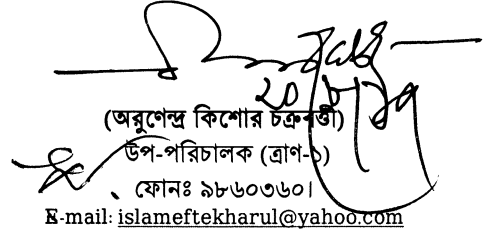 (অরুণেন্দ্র কিশোর চক্রবর্ত্তী)
উপ-পরিচালক (ত্রাণ-১)
ফোনঃ ৯৮৬০৩৬০।
E-mail: islameftekharul@yahoo.com